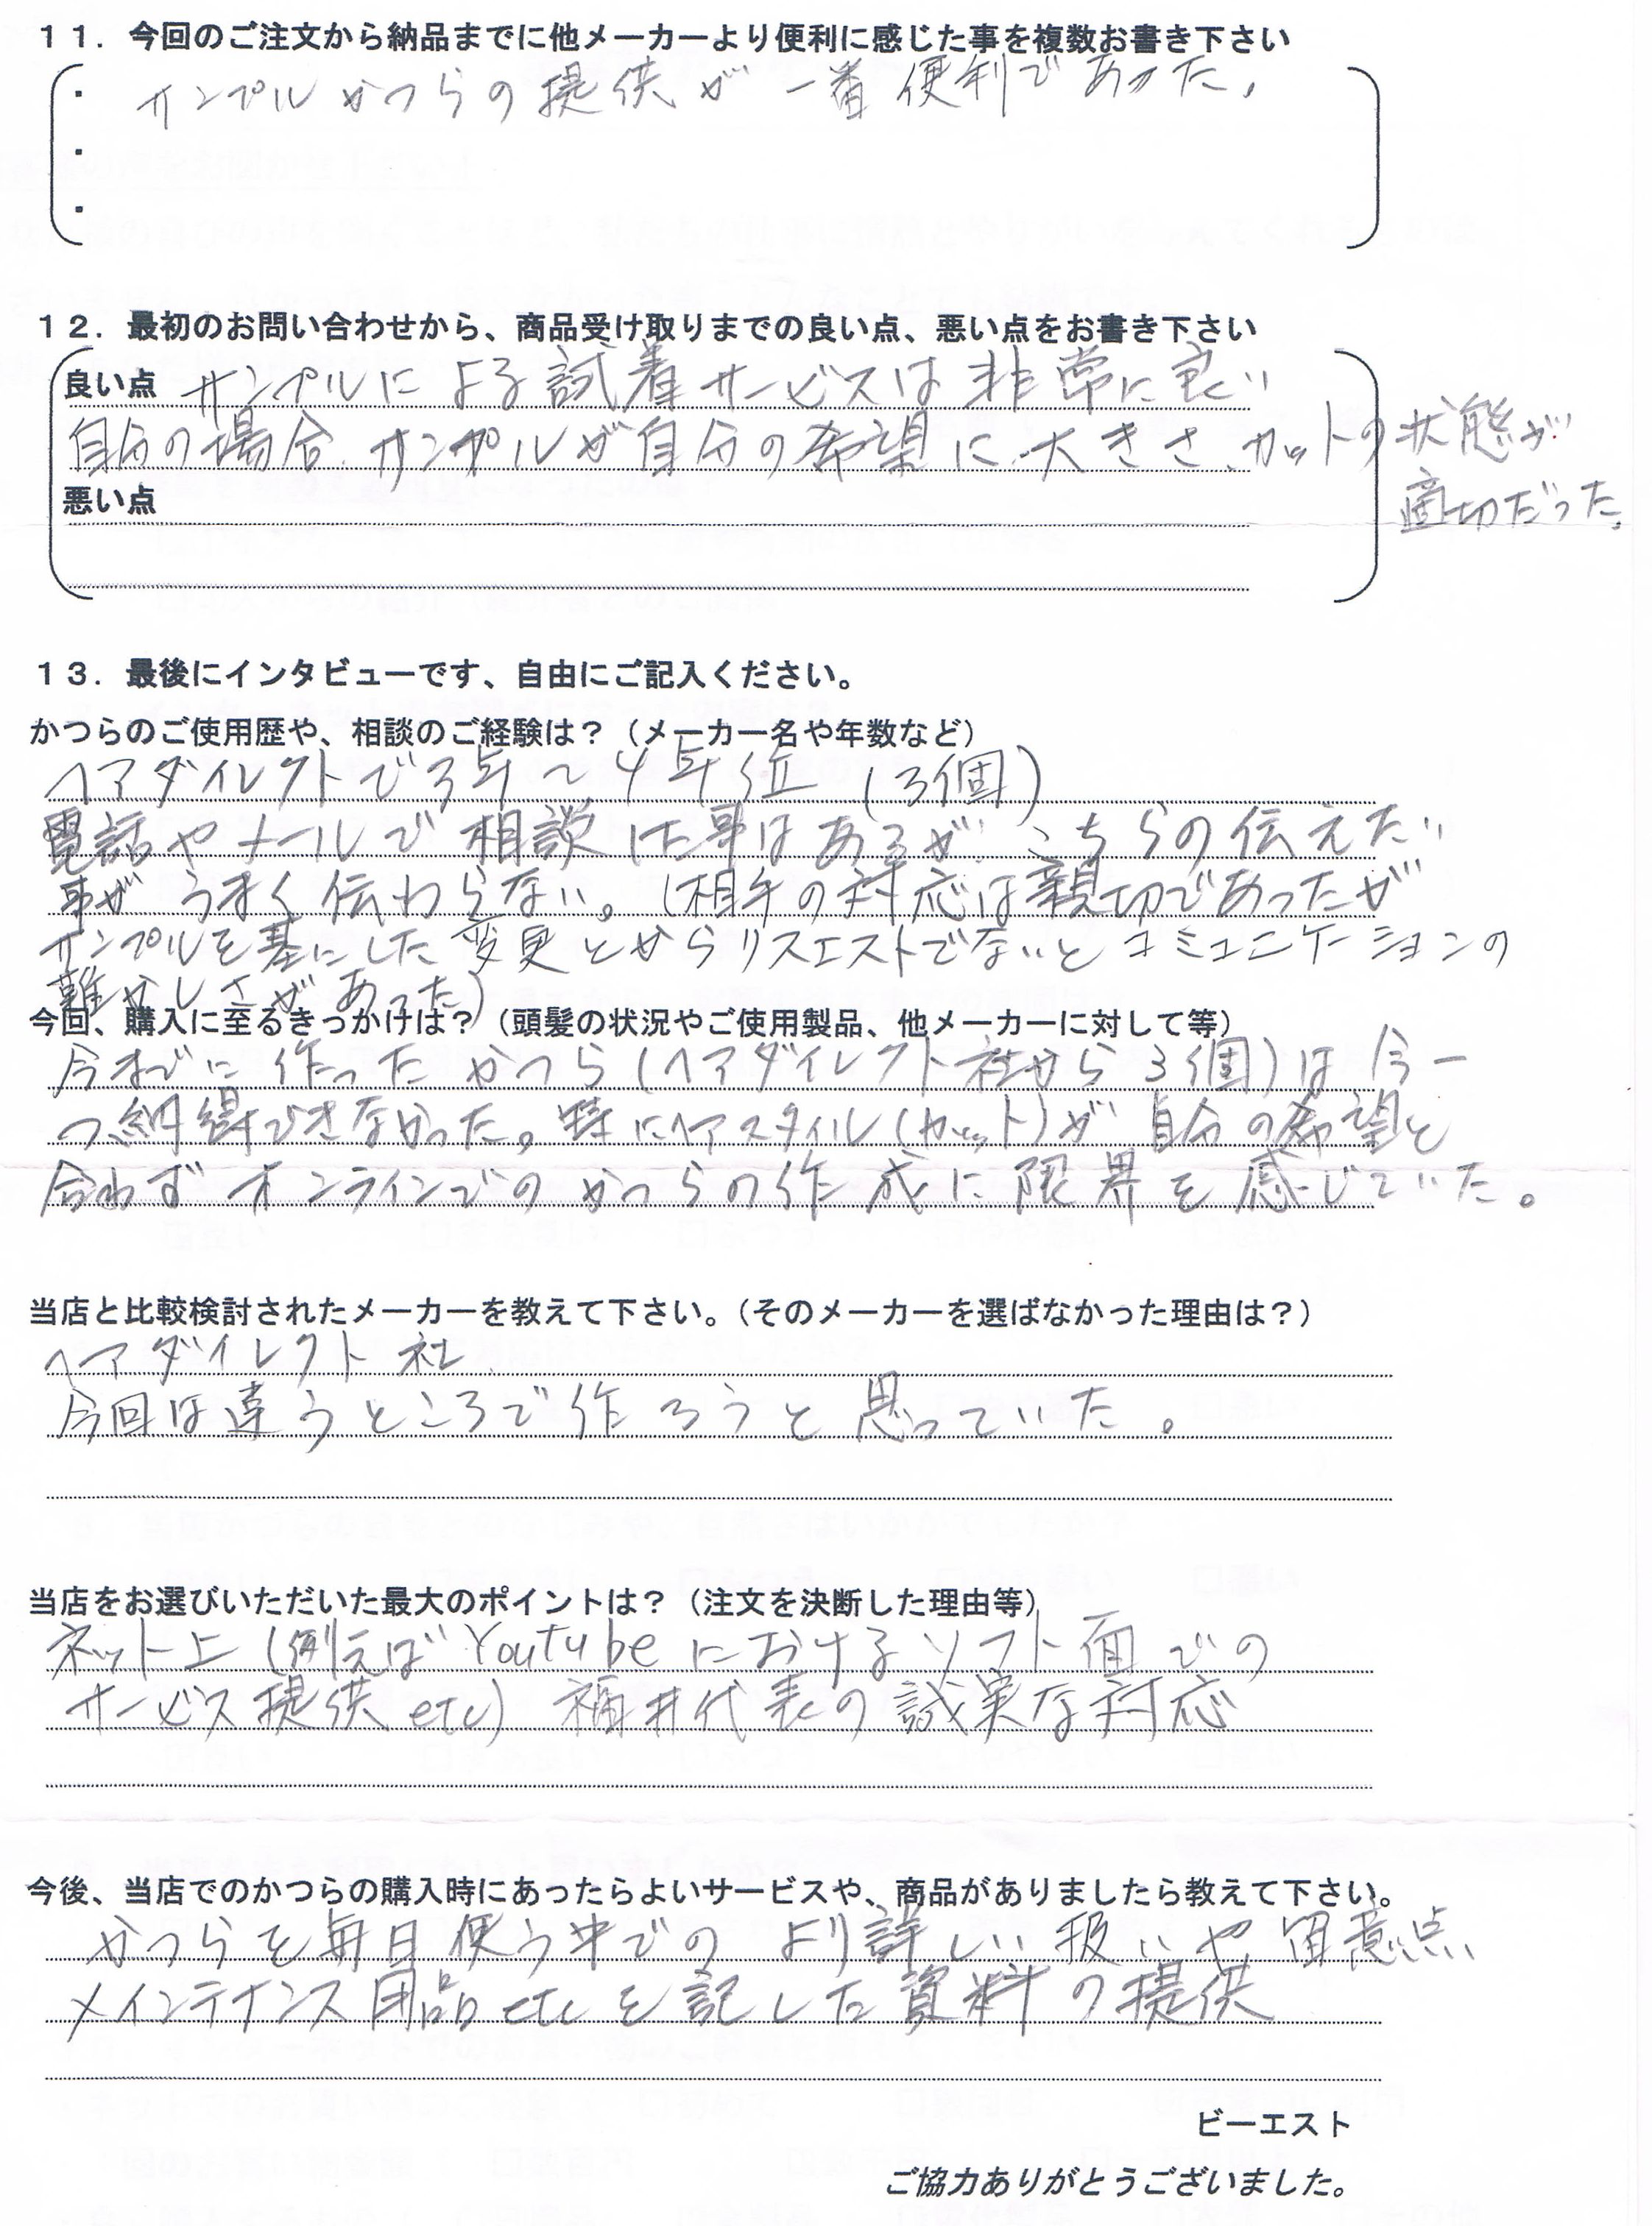 １１．今回のご注文から納品までに他メーカーより便利に感じた事を複数お書き下さい
・ サンプルかつらの提供が一番便利であった。
・
・
１２．最初のお問い合わせから、商品受け取りまでの良い点、悪い点をお書き下さい
良い点 サンプルによる試着サービスは非常に良い
自分の場合、サンプルが自分の希望に大きさ、カットの状態が
適切だった。
悪い点
１３．最後にインタビューです、自由にご記入ください。
かつらのご使用歴や、相談のご経験は？（メーカー名や年数など）
ヘアダイレクトで3年〜4年位（3個）
電話やメールで相談した事はあるが、こちらの伝えたい
事がうまく伝わらない。（相手の対応は親切であったが
サンプルを基にした とか リクエストでないとコミュニケーションの
難かしさがあった）
今回、購入に至るきっかけは？（頭髪の状況やご使用製品、他メーカーに対して等）
今までに作ったかつら（ヘアダイレクト社から3個）は今一
つ納得できなかった。特にヘアスタイル（カット）が自分の希望と
合わずオンラインでのかつらの作成に限界を感じていた。
当店と比較検討されたメーカーを教えて下さい。（そのメーカーを選ばなかった理由は？）
ヘアダイレクト社
今回は違うところで作ろうと思っていた。
当店をお選びいただいた最大のポイントは？（注文を決断した理由等）
ネット上（例えばYoutubeにおけるソフト面での
サービス提供etc）福井代表の誠実な対応
今後、当店でのかつらの購入時にあったらよいサービスや、商品がありましたら教えて下さい。
かつらを毎日使う中での より詳しい扱いや留意点、
メインテナンス用品etcを記した資料の提供
ビーエスト
ご協力ありがとうございました。